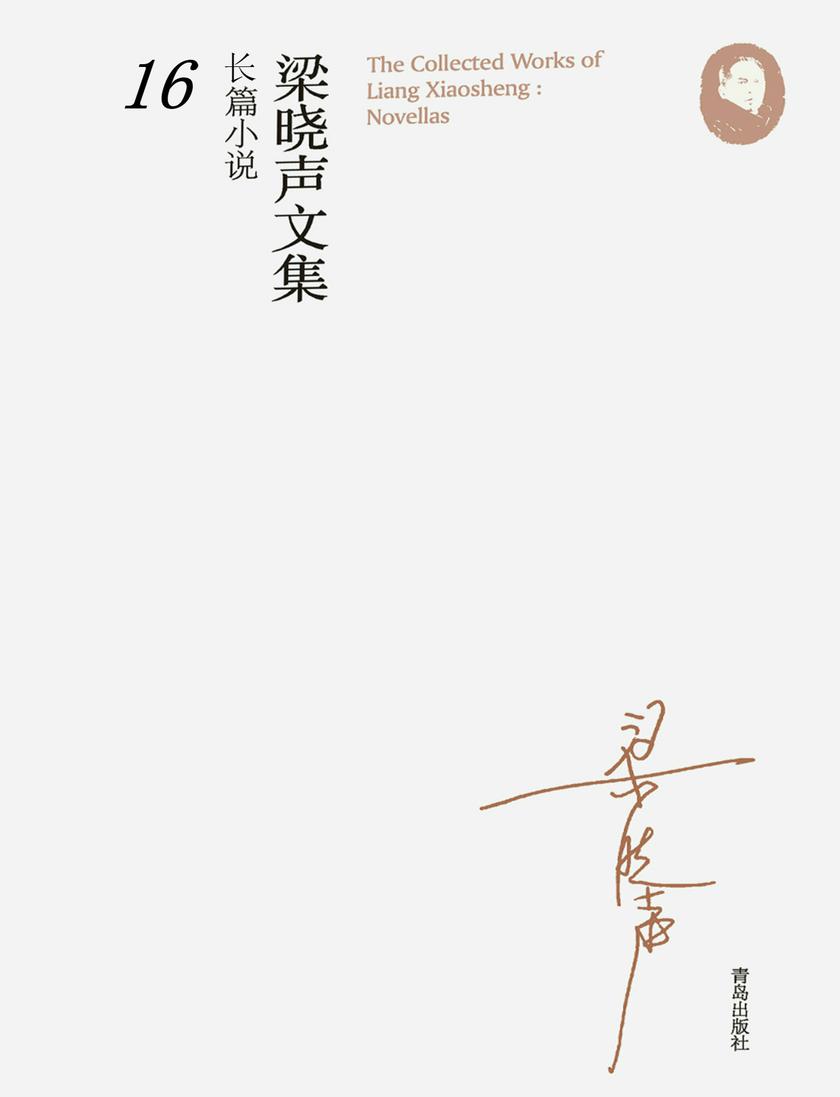 16
长篇小说
梁晓声文集
The Collected Works of
Liang Xiaosheng :
Novellas
梁晓声
青岛出版社